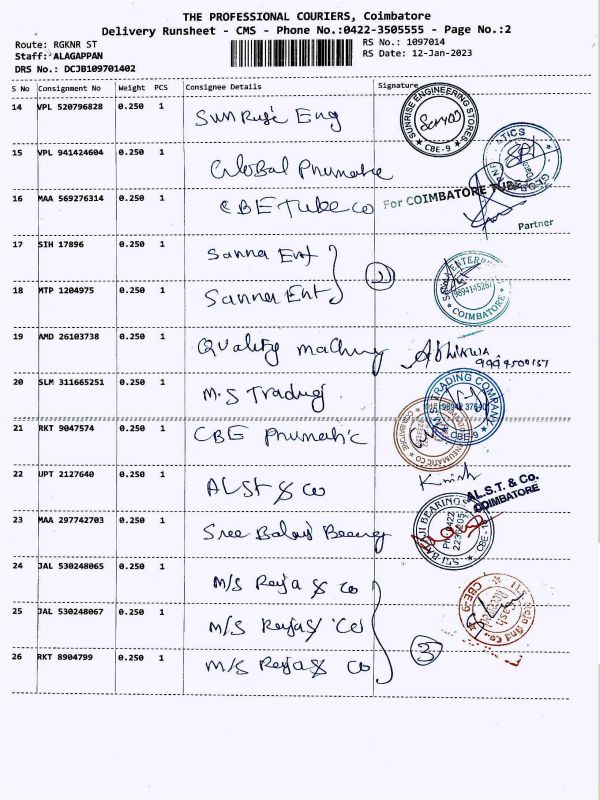 THE PROFESSIONAL COURIERS, Coimbatore
Delivery Runsheet - CMS - Phone No.:0422-3505555 - Page No.:2
Route: RGKNR ST
RS No.: 1097014
Staff: ALAGAPPAN
RS Date: 12-Jan-2023
DRS No.: DCJB109701402
S No Consignment No Weight PCS Consignee Details Signature
14 VPL 520796828 0.250 1 Sun Rise Eng
SUNRISE ENGINEERING STORES
CBE-9
15 VPL 941424604 0.250 1 Global Pnumatic
16 MAA 569276314 0.250 1 CBE Tube co For COIMBATORE TUBE
Partner
17 SIH 17896 0.250 1 Sanna Ent
2
18 MTP 1204975 0.250 1 Sanna Ent
COIMBATORE
19 AMD 26103738 0.250 1 Quality machinry
20 SLM 311665251 0.250 1 M.S Trading
TRADING COMPANY
CBE-9
21 RKT 9047574 0.250 1 CBE Pnumatic
22 UPT 2127640 0.250 1 ALST & Co
AL.S.T. & Co.
COIMBATORE
23 MAA 297742703 0.250 1 Sree Balaji Bearing
SRI BALAJI BEARINGS
24 JAL 530248065 0.250 1 M/s Reyja & Co
CBE-9
25 JAL 530248067 0.250 1 M/s Reyja & Co
3
26 RKT 8904799 0.250 1 M/s Reyja & Co